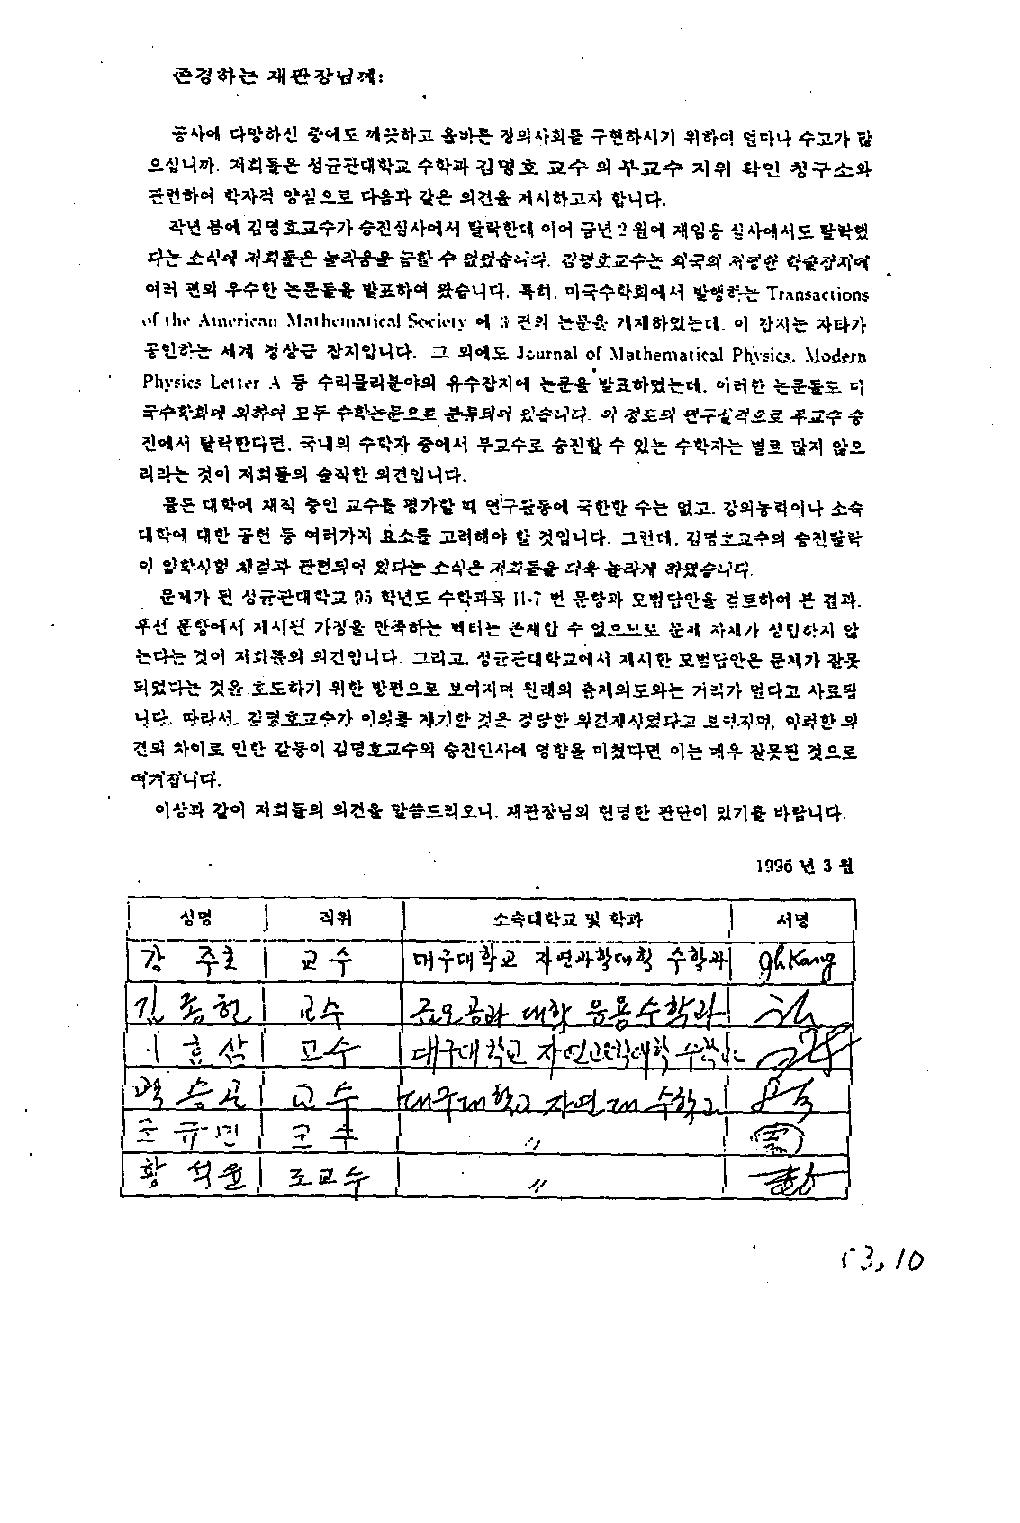 존경하는 재판장님께:
공사에 다망하신 중에도 깨끗하고 올바른 정의사회를 구현하시기 위하여 얼마나 수고가 많
으십니까. 저희들은 성균관대학교 수학과 김명호 교수 의 부교수 지위 확인 청구소와
관련하여 학자적 양심으로 다음과 같은 의견을 제시하고자 합니다.
작년 봄에 김명호교수가 승진심사에서 탈락한데 이어 금년 2월에 재임용 심사에서도 탈락했
다는 소식에 저희들은 놀라움을 금할 수 없었습니다. 김명호교수는 외국의 저명한 학술잡지에
여러 편의 우수한 논문들을 발표하여 왔습니다. 특히, 미국수학회에서 발행하는 Transactions
of the American Mathematical Society 에 3 편의 논문을 기재하였는데, 이 잡지는 자타가
공인하는 세계 정상급 잡지입니다. 그 외에도 Journal of Mathematical Physics, Modern
Physics Letter A 등 수리물리분야의 유수잡지에 논문을 발표하였는데, 이러한 논문들도 미
국수학회에 의하여 모두 수학논문으로 분류되어 있습니다. 이 정도의 연구실적으로 부교수 승
진에서 탈락한다면, 국내의 수학자 중에서 부교수로 승진할 수 있는 수학자는 별로 많지 않으
리라는 것이 저희들의 솔직한 의견입니다.
물론 대학에 재직 중인 교수를 평가할 때 연구활동에 국한할 수는 없고, 강의능력이나 소속
대학에 대한 공헌 등 여러가지 요소를 고려해야 할 것입니다. 그런데, 김명호교수의 승진탈락
이 입학시험 채점과 관련되어 있다는 소식은 저희들을 더욱 놀라게 하였습니다.
문제가 된 성균관대학교 95 학년도 수학과목 II-7 번 문항과 모범답안을 검토하여 본 결과,
우선 문항에서 제시된 가정을 만족하는 벡터는 존재할 수 없으므로 문제 자체가 성립하지 않
는다는 것이 저희들의 의견입니다. 그리고, 성균관대학교에서 제시한 모범답안은 문제가 잘못
되었다는 것을 호도하기 위한 방편으로 보여지며 원래의 출제의도와는 거리가 멀다고 사료됩
니다. 따라서, 김명호교수가 이의를 제기한 것은 정당한 의견제시였다고 보여지며, 이러한 의
견의 차이로 인한 갈등이 김명호교수의 승진인사에 영향을 미쳤다면 이는 매우 잘못된 것으로
여겨집니다.
이상과 같이 저희들의 의견을 말씀드리오니, 재판장님의 현명한 판단이 있기를 바랍니다.
1996 년 3 월
성명 직위 소속대학교 및 학과 서명
강 주호 교수 대구대학교 자연과학대학 수학과 gh Kang
김 종헌 교수 금오공과 대학 응용수학과
효삼 교수 대구대학교 자연과학대학 수학과
백 승 교수 대구대학교 자연대 수학과
조 규민 교수 〃
황 석윤 조교수 〃
3, 10